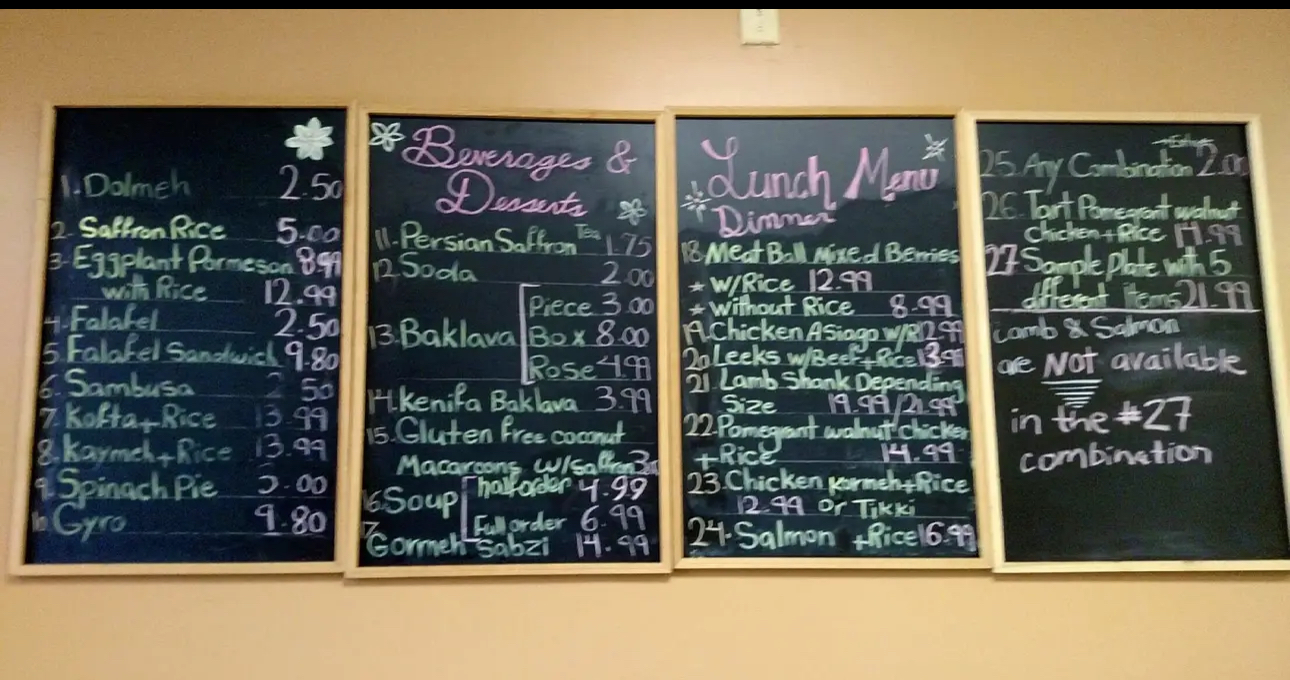 1. Dolmeh 2.50
2. Saffron Rice 5.00
3. Eggplant Parmesan 8.99
with Rice 12.99
4. Falafel 2.50
5. Falafel Sandwich 9.80
6. Sambusa 2.50
7. Kofta + Rice 13.99
8. Kaymeh + Rice 13.99
9. Spinach Pie 3.00
10. Gyro 9.80
Beverages &
Desserts
11. Persian Saffron Tea 1.75
12. Soda 2.00
Piece 3.00
13. Baklava Box 8.00
Rose 4.99
14. Kenifa Baklava 3.99
15. Gluten free coconut
Macaroons w/saffron
16. Soup half order 4.99
Full order 6.99
17
Gormeh Sabzi 14.99
Lunch Menu
Dinner
18. Meat Ball Mixed Berries
* w/Rice 12.99
* without Rice 8.99
19. Chicken Asiago w/R 12.99
20 Leeks w/Beef + Rice 13.99
21. Lamb Shank Depending
Size 19.99/21.99
22. Pomegrant walnut chicken
+ Rice 14.99
23. Chicken Kormeh + Rice
12.99 Or Tikki
24. Salmon + Rice 16.99
25. Any Combination 2.00
26. Tart Pomegrant walnut
Chicken + Rice 14.99
27 Sample Plate with 5
different Items 21.99
Lamb & Salmon
are Not available
in the #27
combination